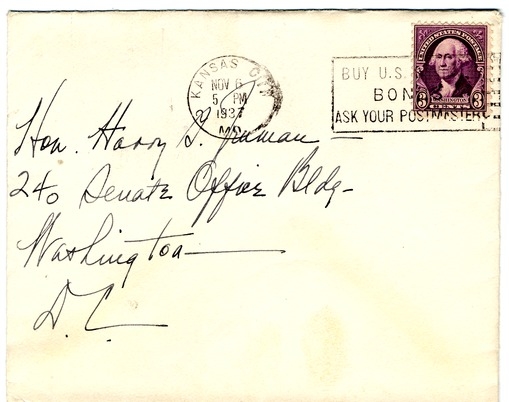 KANSAS CITY
NOV 6
5 PM
1937
MO.
BUY U.S.
BON
ASK YOUR POSTMASTER
UNITED STATES POSTAGE
3 WASHINGTON 3
CENTS
Hon. Harry S. Truman
240 Senate Office Bldg-
Washington
D.C.